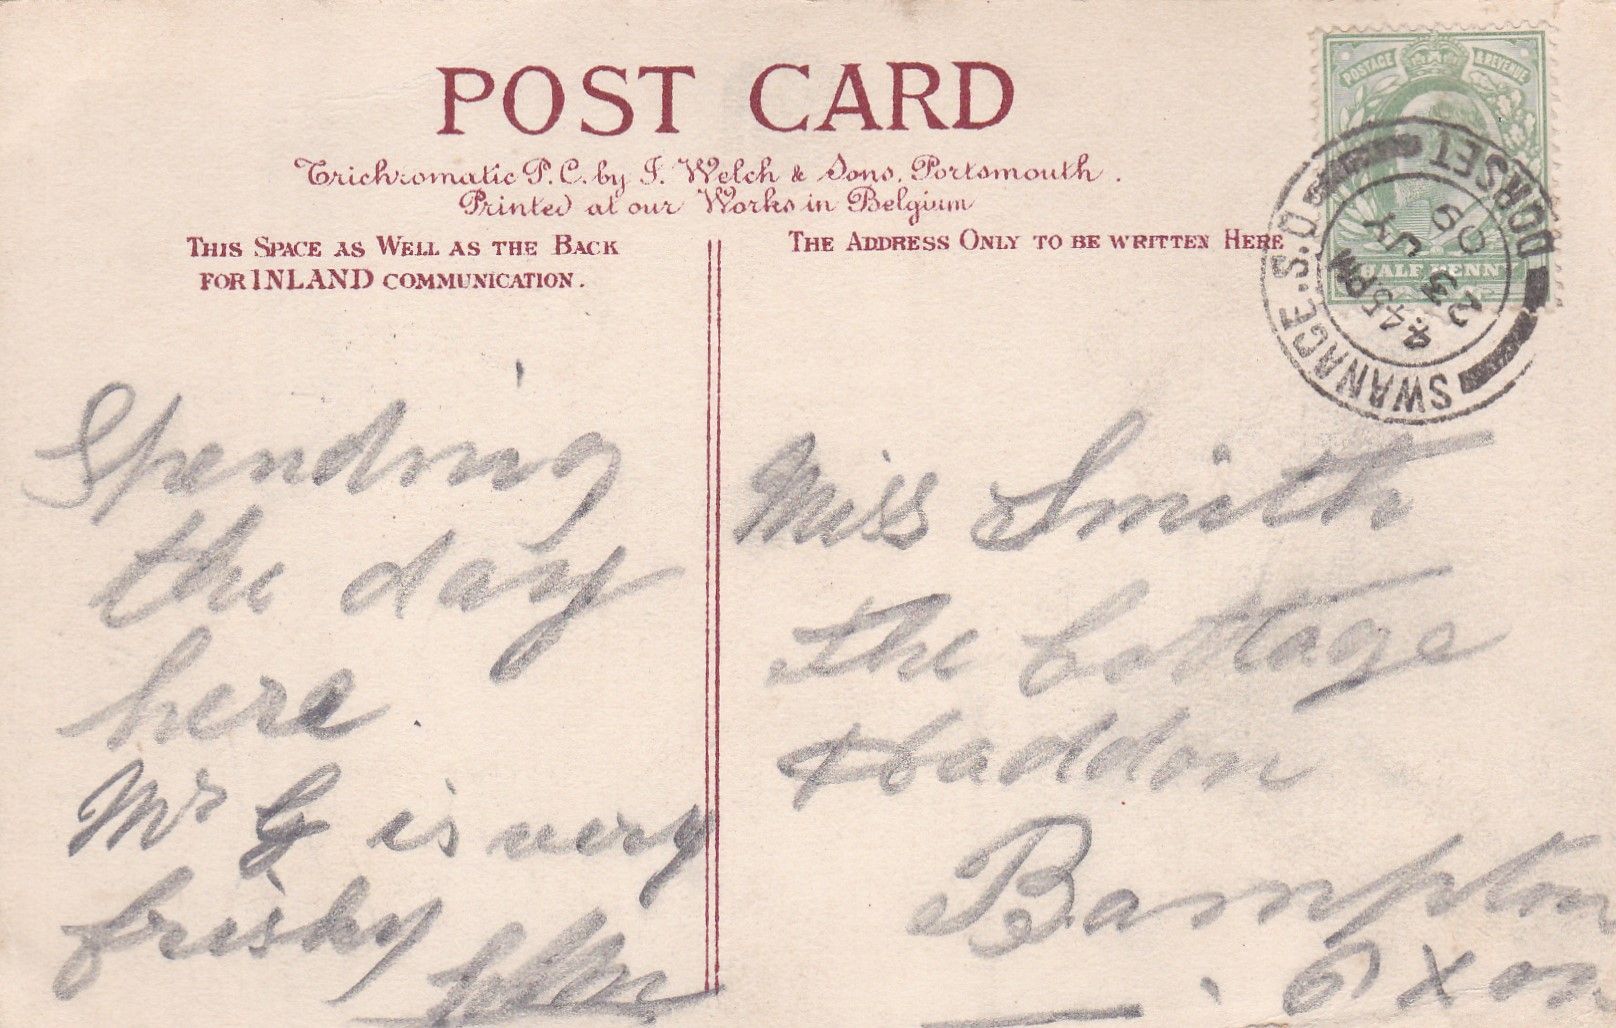 POST CARD
Trichromatic P.C. by J. Welch & Sons, Portsmouth.
Printed at our Works in Belgium
THIS SPACE AS WELL AS THE BACK
FOR INLAND COMMUNICATION.
THE ADDRESS ONLY TO BE WRITTEN HERE
POSTAGE & REVENUE
HALF PENNY
SWANAGE.S.O.
DORSET
4.45PM
23 JY
09
Spending
the day
here
Mr G is very
frisky
Miss Smith
The Cottage
Haddon
Bampton
Oxon